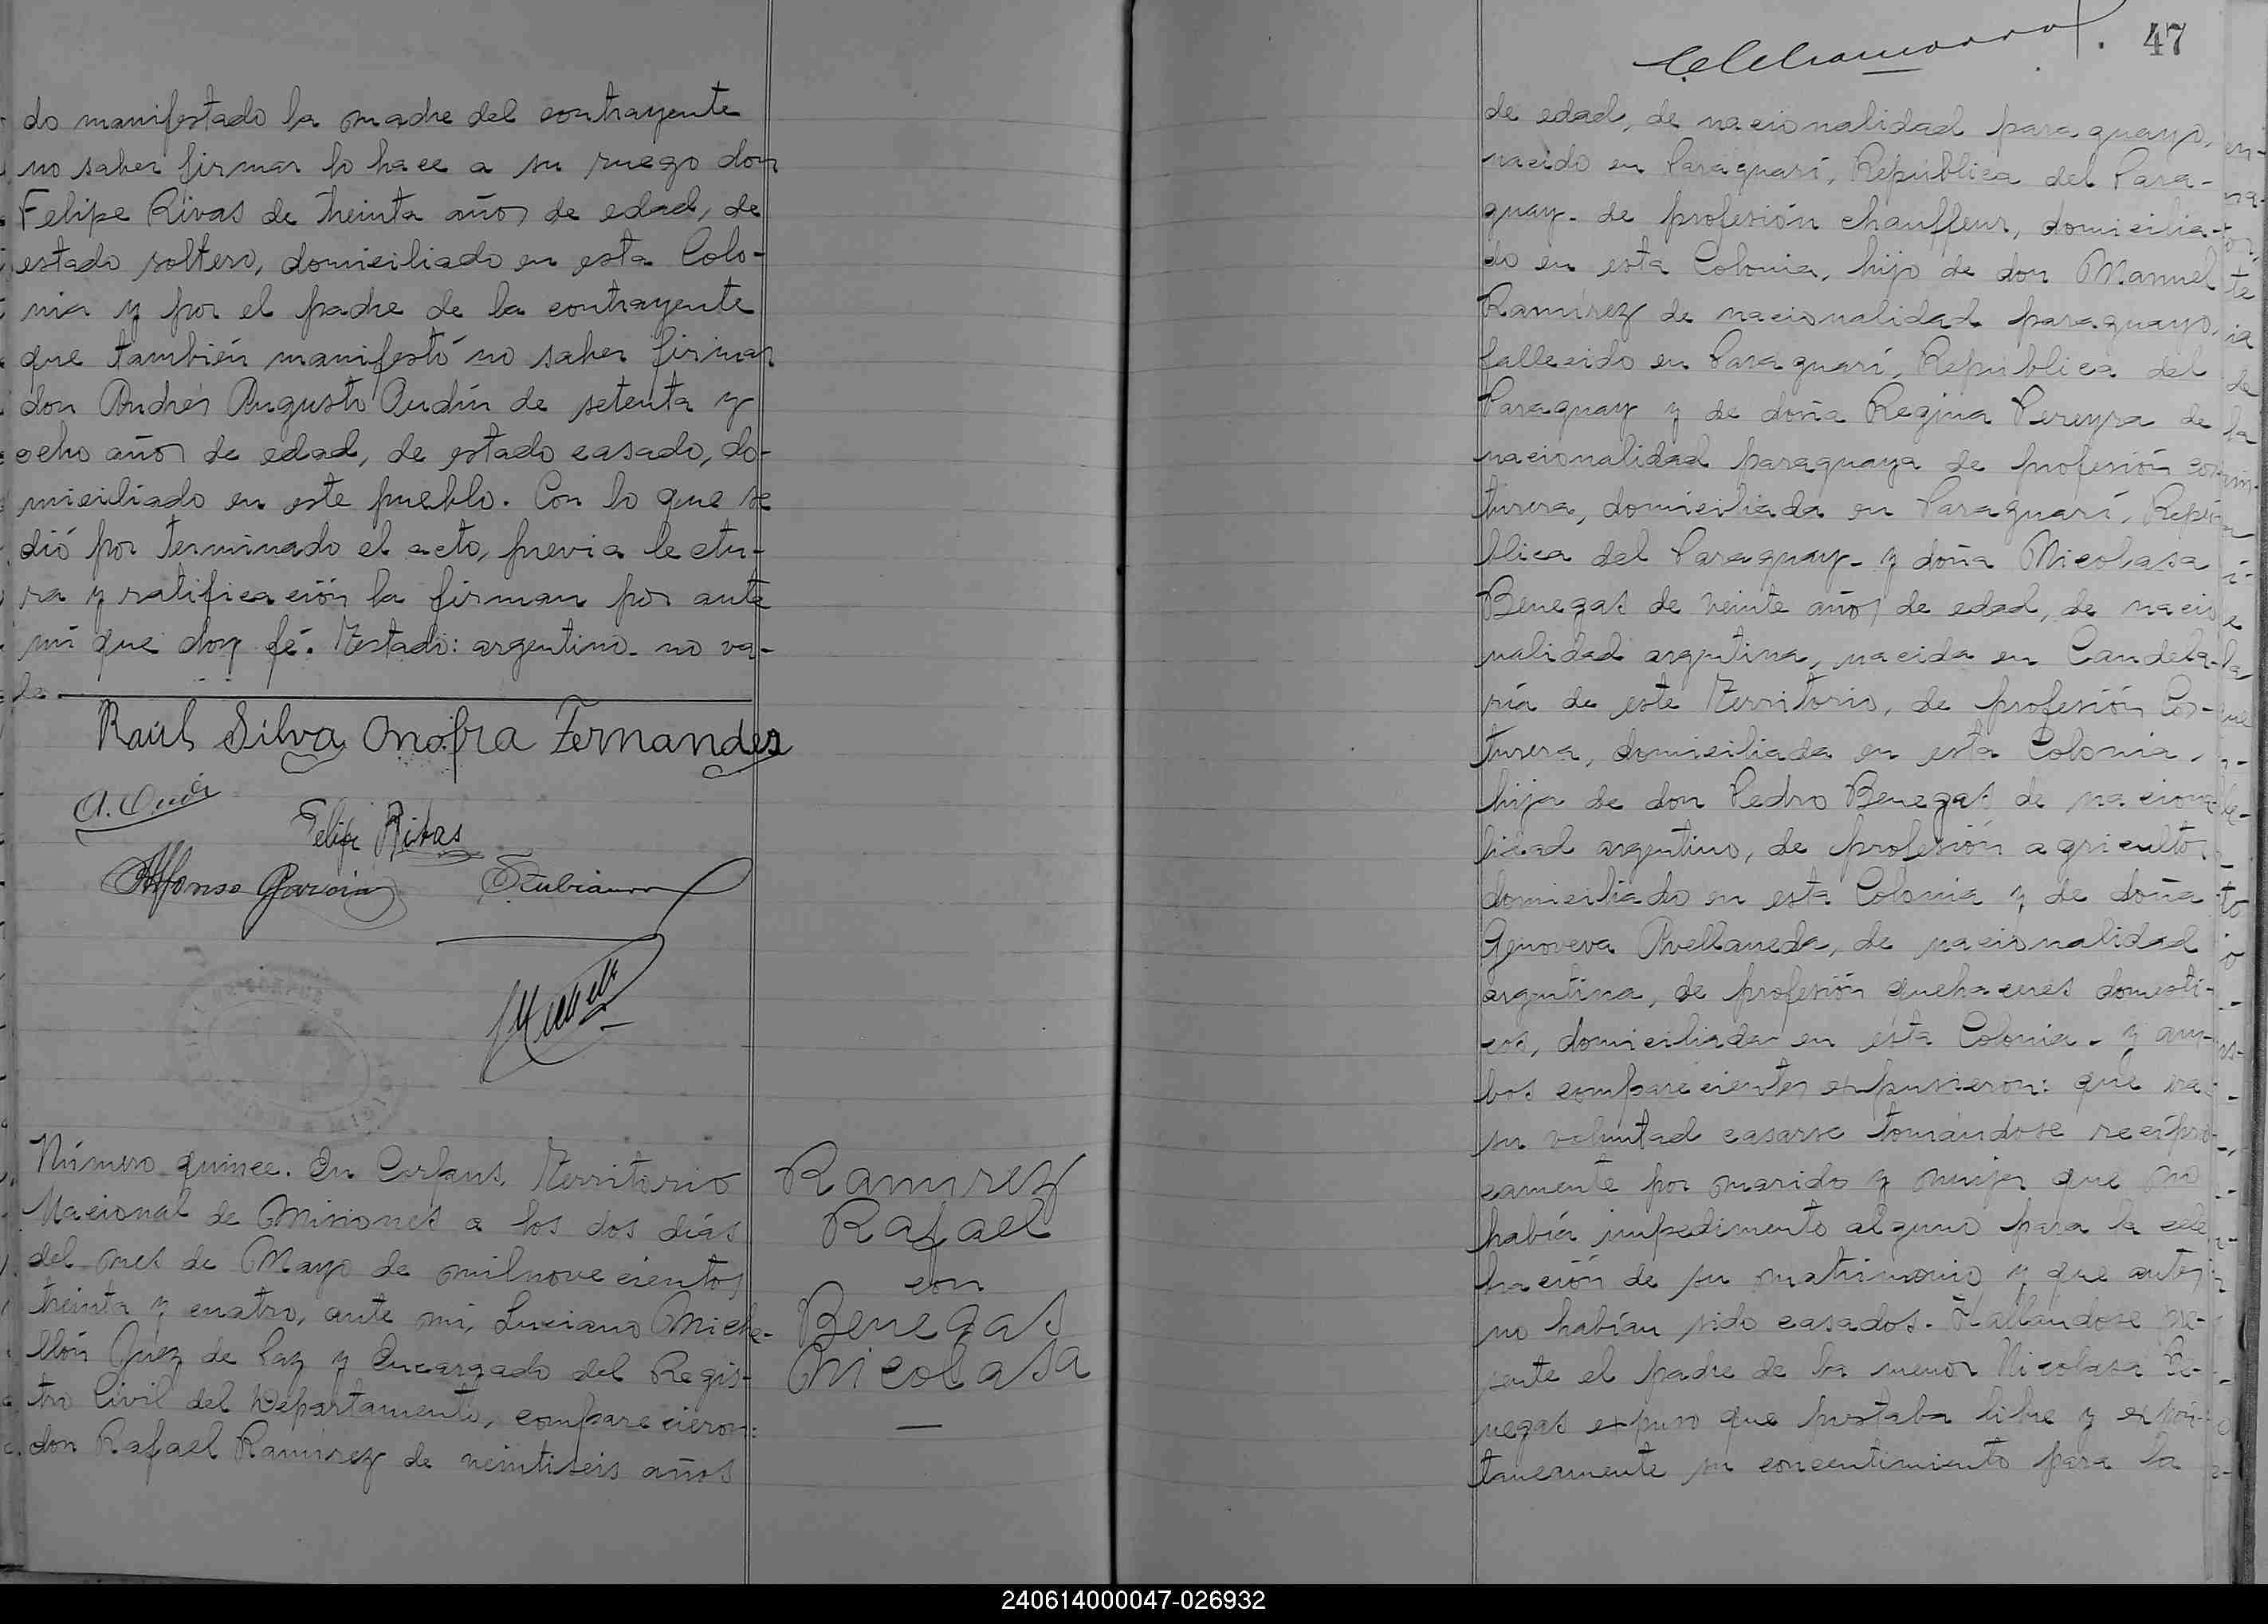 do manifestado la madre del contrayente
no saber firmar lo hace a su ruego don
Felipe Rivas de treinta años de edad, de
estado soltero, domiciliado en esta Colo-
nia y por el padre de la contrayente
que también manifestó no saber firmar
don Andrés Augusto Oudín de setenta y
ocho años de edad, de estado casado, do-
miciliado en este pueblo. Con lo que se
dió por terminado el acto, previa lectu-
ra y ratificación la firman por ante
mí que doy fé. Testado: argentino. no va-
le.
Raúl Silva Onofra Fernandez
Felipe Rivas
Alfonso Garcia
Número quince. En Corpus, Territorio
Nacional de Misiones a los dos días
del mes de Mayo de milnovecientos
treinta y cuatro, ante mí, Luciano Miche-
llón Juez de Paz y Encargado del Regis-
tro Civil del Departamento, comparecieron:
don Rafael Ramirez de veintiseis años
Ramirez
Rafael
con
Benegas
Nicolasa
47
de edad, de nacionalidad paraguayo,
nacido en Paraguarí, República del Para-
guay- de profesión chauffeur, domicilia-
do en esta Colonia, hijo de don Manuel
Ramírez de nacionalidad paraguayo,
fallecido en Paraguarí, República del
Paraguay y de doña Regina Pereyra de
nacionalidad paraguaya de profesión cos
turera, domiciliada en Paraguarí, Repú
blica del Paraguay- y doña Nicolasa
Benegas de veinte años de edad, de nacio
nalidad argentina, nacida en Candela-
ria de este Territorio, de profesión Cos-
turera, domiciliada en esta Colonia,
hija de don Pedro Benegas de naciona
lidad argentino, de profesión agricultor
domiciliado en esta Colonia y de doña
Genoveva Avellaneda, de nacionalidad
argentina, de profesión quehaceres domesti-
cos, domiciliada en esta Colonia. y am-
bos comparecientes expusieron: que era
su voluntad casarse tomándose recípro
camente por marido y mujer que no
había impedimento alguno para la cele
bración de su matrimonio y que antes
no habían sido casados. Hallandose pre-
sente el padre de la menor Nicolasa Be-
negas expuso que prestaba libre y expón-
taneamente su concentimiento para la
240614000047-026932